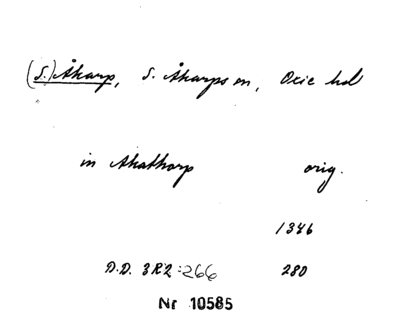 (S.) Åkarp, S. Åkarps sn, Oxie hd
in Akathorp orig.
1346
D.D. 3R2:266 280
Nr 10585